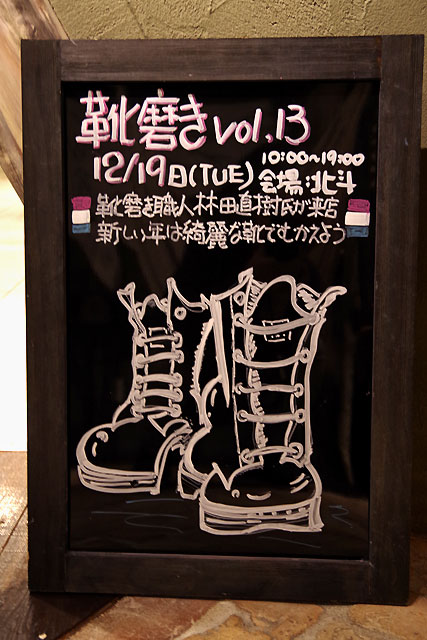 靴磨き vol.13
12/19日(TUE) 10:00~19:00
会場:北斗
靴磨き職人林田直樹氏が来店
新しい年は綺麗な靴でむかえよう